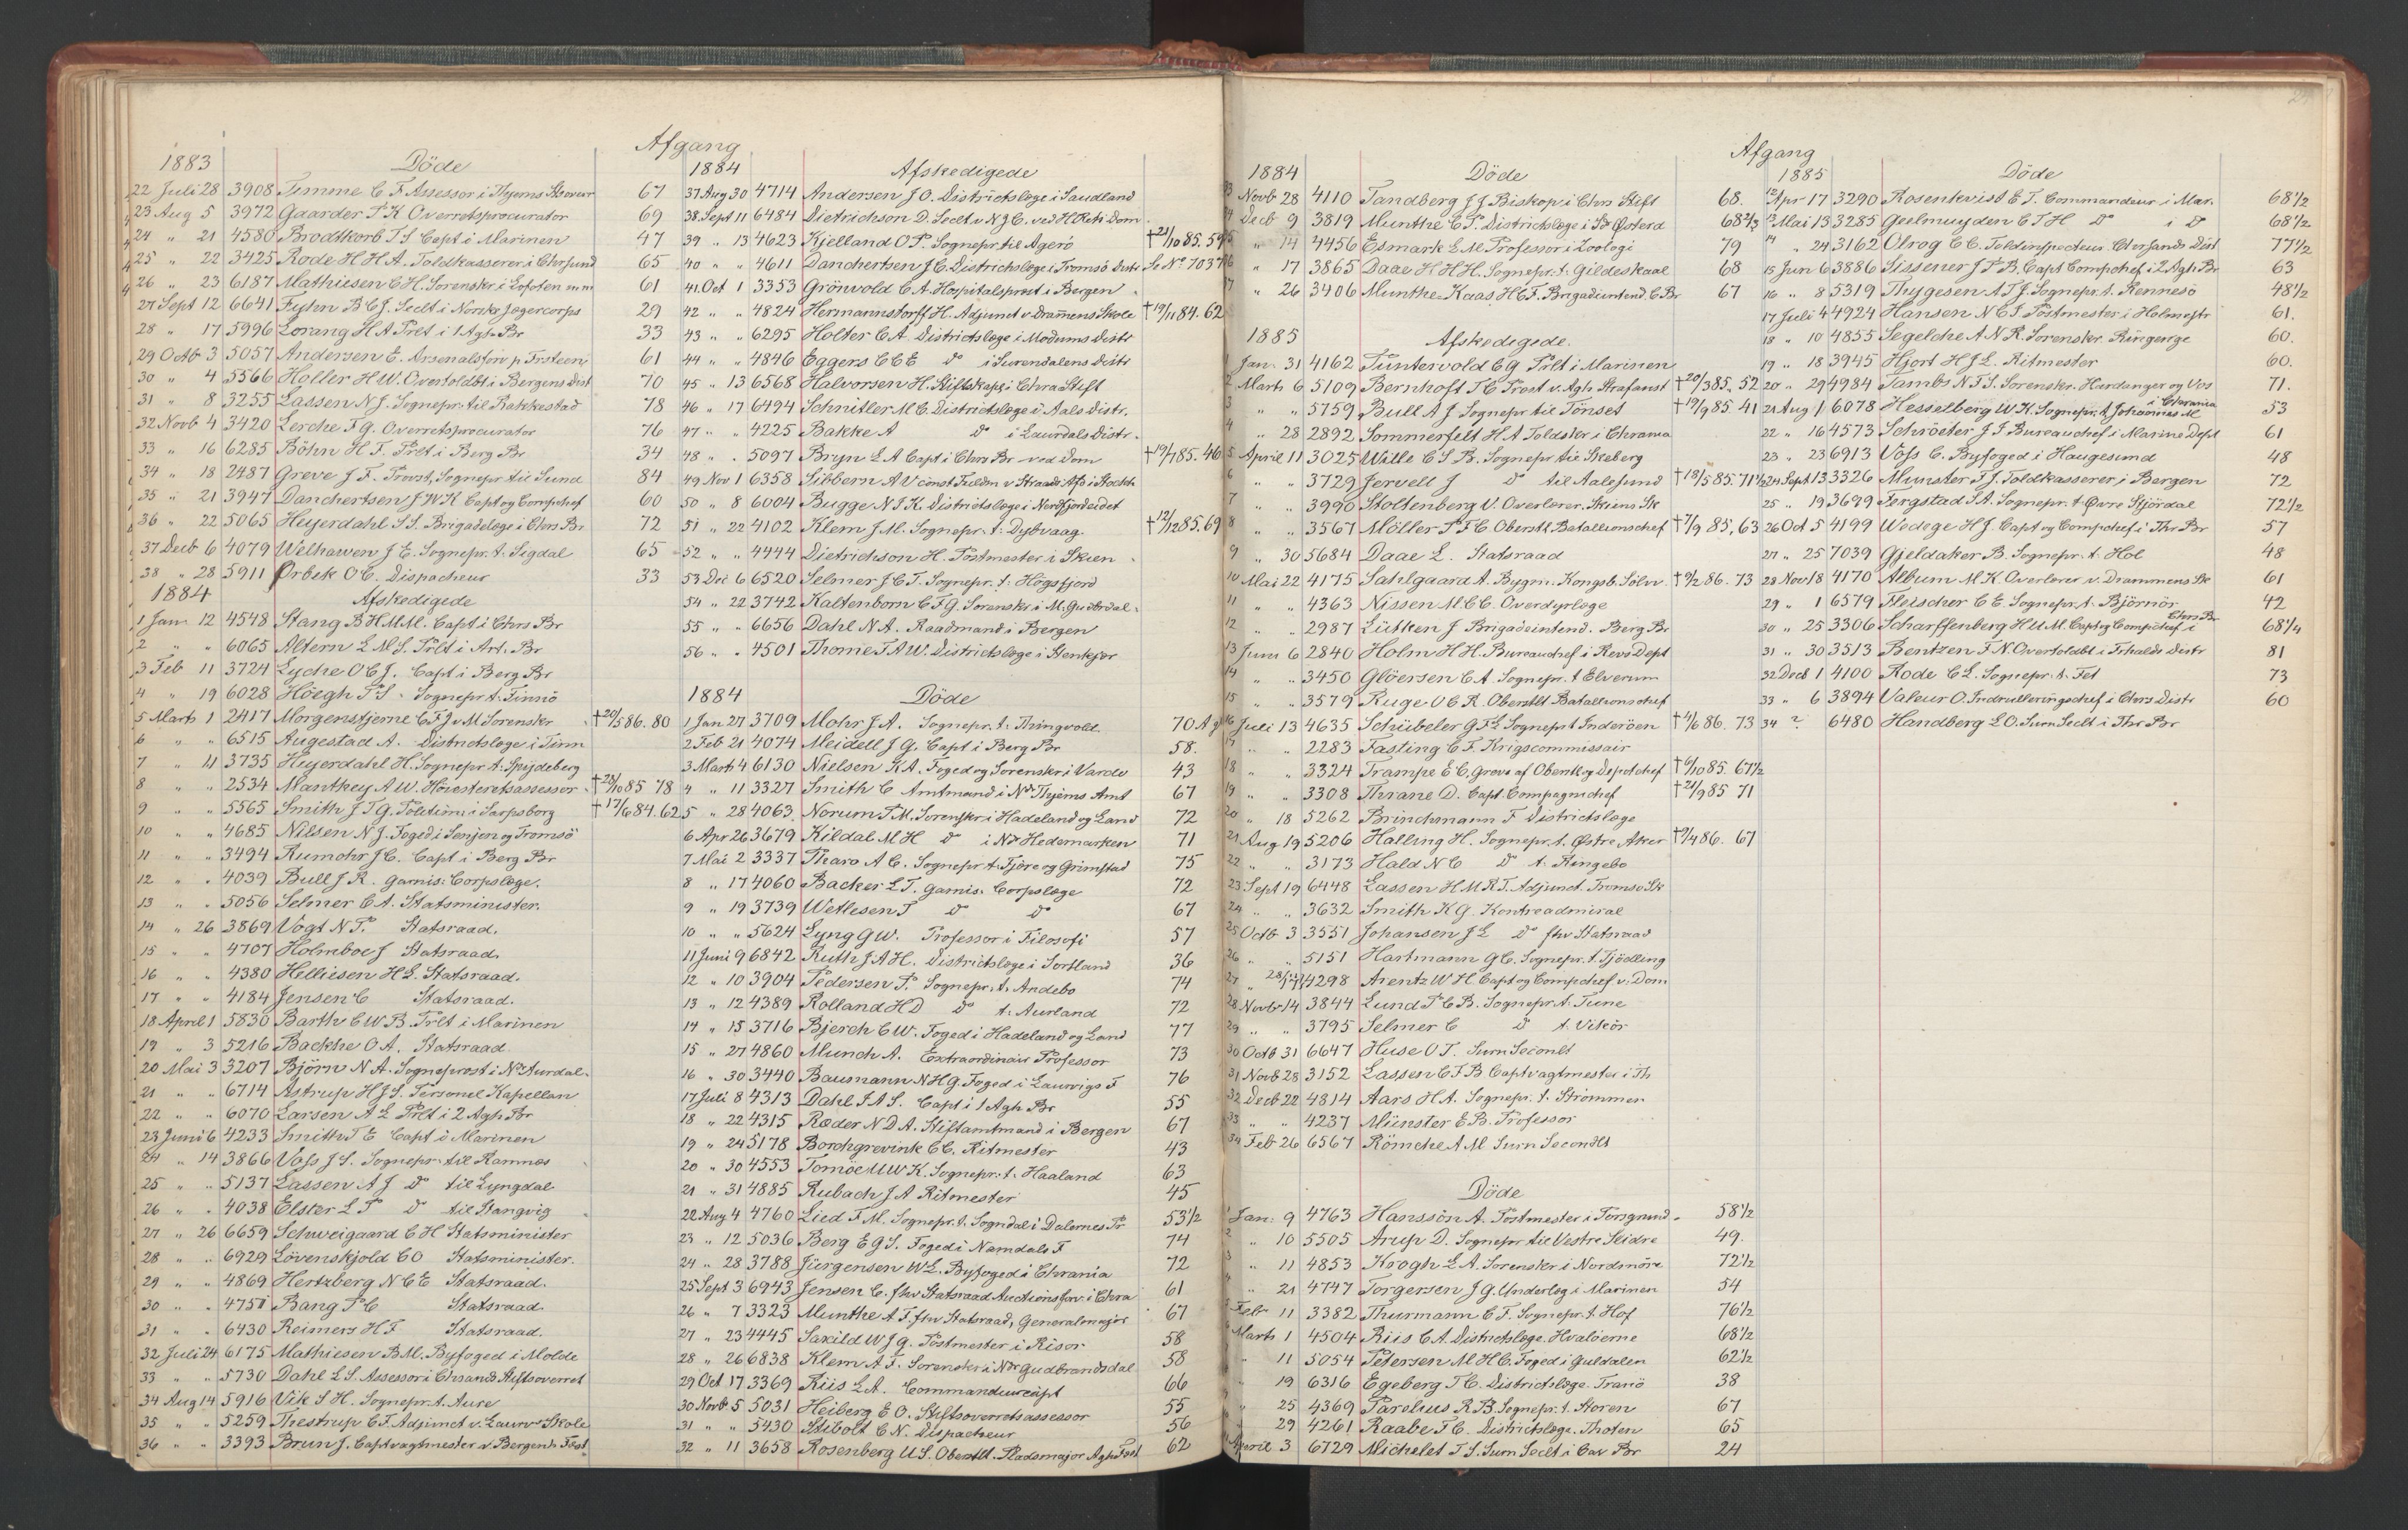 Afgang
1883 Döde
22 Juli 28 3908 Timme C F Assessor i Thjems Stsoverr 67
23 Aug 5 3972 Gaarder P K Overretsprocurator 69
24 " 21 4580 Brodtkorb T S Capt i Marinen 47
25 " 22 3425 Rode H H A. Toldkasserer i Chrsund 65
26 " 23 6187 Mathiesen C H. Sorenskr. i Lofoten 61
27 Sept 12 6641 Fyhn B C J. Seclt i Norske Jægercorps 29
28 " 17 5996 Lorang H A Prlt i 1 Agh. Br 33
29 Octb 3 5057 Andersen E. Arsenalsforv p. Frsteen 61
30 " 4 5566 Holler H W. Overtoldbt i Bergens Dist 70
31 " 8 3255 Lassen N J. Sognepr. til Rakkestad 78
32 Novb 4 3420 Lerche F G. Overretsprocurator 76
33 " 16 6285 Böhn H F. Prlt i Berg Br 34
34 " 18 2487 Greve J F. Provst, Sognepr til Sund 84
35 " 21 3947 Danchertsen J W K Capt og Compchef 60
36 " 22 5065 Heyerdahl S S. Brigadelæge i Chrs Br 72
37 Decb 6 4079 Welhaven J E. Sognepr. t. Sigdal 65
38 " 28 5911 Ørbek O C. Dispacheur 33
1884 Afskedigede
1 Jan 12 4548 Stang B H M M. Capt i Chrs Br
2 " " 6065 Altern L M S. Prlt i Art. Br
3 Feb 11 3724 Lyche O C J. Capt i Berg Br
4 " 19 6028 Höegh P S. Sognepr t. Tinnö
5 Marts 1 2417 Morgenstjerne C F J v M Sorenskr †20/5 86. 80
6 " " 6515 Augestad A. Districtslæge i Tinn
7 " 11 3735 Heyerdahl H. Sognepr t. Spydeberg
8 " " 2534 Manthey A W. Höiesteretsassessor †28/10 85 78
9 " " 5565 Smith J T G. Politim. i Sarpsborg †17/6 84. 62
10 " " 4685 Nilsen N J. Foged i Senjen og Tromsö
11 " " 3494 Rumohr J C. Capt i Berg Br
12 " " 4039 Bull J R. Garnis: Corpslæge.
13 " " 5056 Selmer C A. Statsminister.
14 " 26 3869 Vogt N P. Statsraad.
15 " " 4707 Holmboe J Statsraad.
16 " " 4380 Helliesen H L. Statsraad.
17 " " 4184 Jensen C Statsraad.
18 April 1 5830 Barth C W B. Prlt i Marinen
19 " 3 5216 Backhe O A. Statsraad
20 Mai 3 3207 Björn N A. Sogneprest i N. Aurdal.
21 " " 6714 Astrup H J S. Personel Kapellan
22 " " 6070 Larsen A L Prlt i 2 Agh Br
23 Juni 6 4233 Smith T E Capt i Marinen
24 " 14 3866 Voss J S. Sognepr. til Ramnæs
25 " " 5137 Lassen A J Do til Lyngdal
26 " " 4038 Elster L P Do til Stangvig
27 " 26 6659 Schweigaard C H Statsminister
28 " " 6929 Lövenskjold C O Statsminister.
29 " " 4869 Hertzberg N C E Statsraad.
30 " " 4751 Bang P C Statsraad.
31 " " 6430 Reimers H F Statsraad.
32 Juli 24 6175 Mathiesen B M. Byfoged i Molde
33 " " 5730 Dahl L S. Assessor i Chrsands Stiftsoverret
34 Aug 14 5916 Vik S H. Sognepr. t. Aure
35 " " 5259 Thestrup C F. Adjunct v. Laurv. Skole
36 " " 3393 Brun J. Captvagtmester v. Bergenh Fæst
1884 Afskedigede
37 Aug 30 4714 Andersen J O. Districtslæge i Saudland
38 Sept 11 6484 Dietrichson D. Seclt v N J C. ved H Rets Dom
39 " 13 4623 Kjelland O P. Sognepr. til Agerö †21/10 85. 59
40 " " 4611 Danchertsen J C. Districtslæge i Tromsö Distr Se No 7037
41 Oct 1 3353 Grönvold C A. Hospitalsprest i Bergen
42 " " 4824 Hermannstorff H. Adjunct v Drammens Skole †19/11 84. 62
43 " " 6295 Holter C A. Districtslæge i Modums Distr
44 " " 4846 Eggers C C E Do i Surendalens Distr
45 " 13 6568 Halvorsen H. Stiftskap. i Chra Stift
46 " 17 6494 Schnitler M C. Districtslæge i Aals Distr.
47 " " 4225 Bakke A Do i Laurdals Distr.
48 " " 5097 Bryn L A Capt i Chrs Br ved Dom †19/7 85. 46
49 Nov 1 6358 Sibbern A V const Fuldm v Straads Afd i Stockh
50 " 8 6004 Bugge N J K. Districtslæge i Nordfjordeidet
51 " 22 4102 Klem J M. Sognepr. t. Dybvaag. †12/12 85. 69
52 " " 4444 Dietrichson H. Postmester i Skien
53 Dec 6 6520 Selmer J C T. Sognepr. t. Högsfjord
54 " 22 3742 Kaltenborn C F G. Sorenskr i M. Gudbrdal.
55 " " 6656 Dahl N A. Raadmand i Bergen
56 " " 4501 Thome T A W. Districtslæge i Stenkjær
1884 Döde
1 Jan 27 3709 Mohr J A. Sognepr. t. Thingvold. 70
2 Feb 21 4074 Meidell J G. Capt i Berg Br 58.
3 Marts 4 6130 Nielsen K A. Foged og Sorenskr i Vardö 43
4 " 11 3327 Smith C Amtmand i Ndr Thjems Amt 67
5 " 28 4063 Norum P M. Sorenskr i Hadeland og Land 72
6 Apr 26 3679 Kildal M H Do i Ndr Hedemarken 71
7 Mai 2 3337 Tharo A C. Sognepr t. Fjöre og Grimstad 75
8 " 17 4060 Backer L T. Garnis. Corpslæge 72
9 " 19 3739 Wetlesen T Do Do 67
10 " " 5624 Lyng G W. Professor i Filosofi 57
11 Juni 9 6842 Ruth J A H. Districtslæge i Sortland 36
12 " 10 3904 Pedersen P. Sognepr. t. Andebo 74
13 " 12 4389 Rolland H D Do t. Aurland 72
14 " 15 3716 Bjerch C W. Foged i Hadeland og Land 77
15 " 27 4860 Munch A. Extraordinair Professor 73
16 " 30 3440 Baumann N H G. Foged i Laurvigs F 76
17 Juli 8 4313 Dahl J A S. Capt i 1 Agh. Br 55
18 " 22 4315 Ræder N D A. Stiftamtmand i Bergen 67
19 " 24 5178 Borchgrevink C C. Ritmester 43
20 " 30 4553 Tomöe U W K. Sognepr. t. Haaland 63
21 " 31 4885 Rubach J A Ritmester 45
22 Aug 4 4760 Lied F M. Sognepr. t. Sogndal i Dalernes Pr 53½
23 " 12 5036 Berg E G S. Foged i Namdals F 74
24 " 28 3788 Jürgensen W L. Byfoged i Chrania 72
25 Sept 3 6943 Jensen C. fhv Statsraad Auctionsforv. i Chra 61
26 " 7 3323 Munthe A F. fhv Statsraad, Generalmajor 67
27 " 23 4445 Saxild W J G. Postmester i Risör 58
28 " 26 6838 Klem A F. Sorenskr i Ndr Gudbrandsdal 58
29 Oct 17 3369 Riis L A. Commandeurcapt 66
30 Novb 5 5031 Heiberg E O. Stiftsoverretsassessor 55
31 " " 5430 Stibolt C N. Dispacheur 56
32 " 11 3658 Rosenberg U S. Oberstlt. Pladsmajor Agh Fæst 62
Afgang
1884 Döde
33 Novb 28 4110 Tandberg J J Biskop i Chrs Stift 68.
34 Decb 9 3819 Munthe C P. Districtslæge i Sdr Østerd 68⅔
" 14 4456 Esmark L M. Professor i Zoologi 79
" 17 3865 Daae H H H. Sognepr. t. Gildeskaal 68
" 26 3406 Munthe-Kaas H C F. Brigadeintend. C Br 67
1885 Afskedigede.
1 Jan. 31 4162 Tüntervold C G Prlt i Marinen
2 Marts 6 5109 Bernhoft T C Prest v. Agh Strafanst †20/3 85. 52
3 " " 5759 Bull A J Sognepr til Tönset †19/9 85 41
4 " 28 2892 Sommerfelt H A Toldskr i Chrania
5 April 11 3025 Wille C S B. Sognepr til Skeberg
6 " " 3729 Jervell J Do til Aalesund †18/5 85. 71½
7 " " 3990 Stoltenberg V. Overlærer. Skiens Sk
8 " " 3567 Möller P F C Oberstlt Batallionschef †7/9 85, 63
9 " 30 5684 Daae L. Statsraad
10 Mai 22 4175 Sahlgaard A. Bygm. Kongsb. Sölv. †9/2 86. 73
11 " " 4363 Nissen M C C. Overdyrlæge
12 " " 2987 Lütken J Brigadeintend. Berg Br
13 Juni 6 2840 Holm H H. Bureauchef i Revs Dept
14 " " 3450 Glöersen C A. Sognepr. t Elverum
15 " " 3579 Ruge O C R. Oberstlt Batallionschef
16 Juli 13 4635 Schübeler G F L Sognepr t Inderöen †4/6 86. 73
17 " " 2283 Fasting C F. Krigscommissair
18 " " 3324 Trampe E C. Greve af Oberstlt og Depotchef †6/10 85. 67½
19 " " 3308 Thrane D. Capt. Compagnichef †21/9 85 71
20 " 18 5262 Brinchmann F Districtslæge
21 Aug 19 5206 Halling H. Sognepr. t. Østre Aker †9/4 86. 67
22 " " 3173 Hald N C Do t. Ringebo
23 Sept 19 6448 Lassen H M R T. Adjunct. Tromsö Sk
24 " " 3632 Smith K G. Kontreadmiral
25 Octb 3 3551 Johansen J L Do fhv Statsraad
26 " " 5151 Hartmann G C. Sognepr. t. Tjödling
27 " 28/11 4298 Arentz W H Capt og Compchef v. Dom
28 Novb 14 3844 Lund P C B. Sognepr. t. Tune
29 " " 3795 Selmer C Do t. Vikör
30 Octb 31 6647 Huse O T. Surn Secondlt
31 Novb 28 3152 Lassen C F B Captvagtmester i Th
32 Decb 22 4814 Aars H A. Sognepr. t. Strömmen
33 " " 4237 Münster E B. Professor
34 Feb 26 6567 Römcke A M Surn Secondlt
Döde
1 Jan: 9 4763 Hanssön A. Postmester i Porsgrund. 58½
2 " 10 5505 Arup D. Sognepr til Vestre Slidre 49.
3 " 11 4853 Krogh L A. Sorenskr i Nordmöre 72½
4 " 21 4747 Torgersen J G. Underlæg i Marinen 54
Feb 11 3382 Thurmann C F. Sognepr. t. Hof 76½
Marts 1 4504 Riis C A. Districtslæge. Hvalöerne 68½
" 11 5054 Petersen M H C. Foged i Guldalen 62½
" 19 6316 Egeberg T C. Districtslæge. Tranö 38
" 25 4369 Parelius R B. Sognepr. t. Storen 67
" 29 4261 Raabe F C. Districtslæge. Thoten 65
April 3 6729 Michelet T S. Surn Seclt i Cav Br 24
1885 Döde
12 Apr 17 3290 Rosenkvist E T. Commandeur i Mar. 68½
13 Mai 13 3285 Geelmuyden C T H Do i Do 68½
14 " 24 3162 Olrog C C. Toldinspecteur. Chrsands Dist 77½
15 Jun 6 3886 Sissener J P B. Capt Compchef i 2 Agh Br 63
16 " 8 5319 Thygesen A T J. Sognepr. t. Rennesö 48½
17 Juli 4 4924 Hansen N C T. Postmester i Holmestr 61.
18 " 10 4855 Segelcke A N R. Sorenskr. Ringerge 60.
19 " 18 3945 Hjort H J L. Ritmester 60.
20 " 29 4984 Tambs N F S. Sorenskr. Hardanger og Vos 71.
21 Aug 1 6078 Hesselberg W K. Sognepr. t. Johannes M i Chrania 53
22 " 16 4573 Schröeter J F Bureauchef i Marine Dept 61
23 " 23 6913 Voss C. Byfoged i Haugesund 48
24 Sept 13 3326 Munster F J. Toldkasserer i Bergen 72
25 " 19 3699 Fergstad T A. Sognepr. t. Øvre Stjördal 72½
26 Oct 5 4199 Wedege H J. Capt og Compchef i Thr Br 57
27 " 25 7039 Gjeldaker B. Sognepr. t. Hol 48
28 Nov 18 4170 Album M K. Overlærer v. Drammens Sk 61
29 " 1 6579 Fleischer C E. Sognepr. t. Björnör 42
30 " 25 3306 Scharffenberg H U M. Capt og Compchef i Chrs Br 68¼
31 " 30 3513 Bentzen F N. Overtoldbt i Frhalds Distr 81
32 Decb 1 4100 Rode C L. Sognepr. t. Fet 73
33 " 6 3894 Valeur O. Indrulleringschef i Chrs Distr 60
34 ? 6480 Handberg L O. Surn Seclt i Thr Br